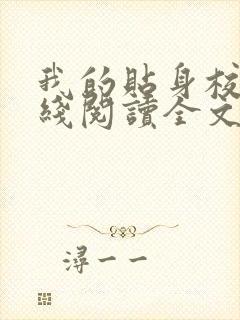 我的貼身校
綫閱讀全文
潯一一